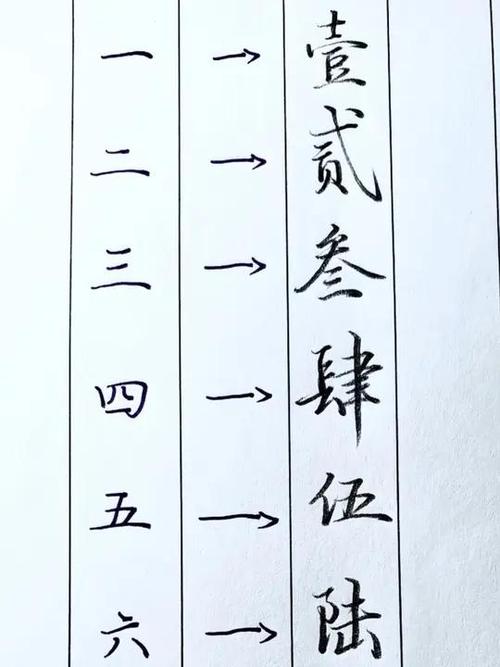 一 → 壹
二 → 贰
三 → 叁
四 → 肆
五 → 伍
六 → 陆